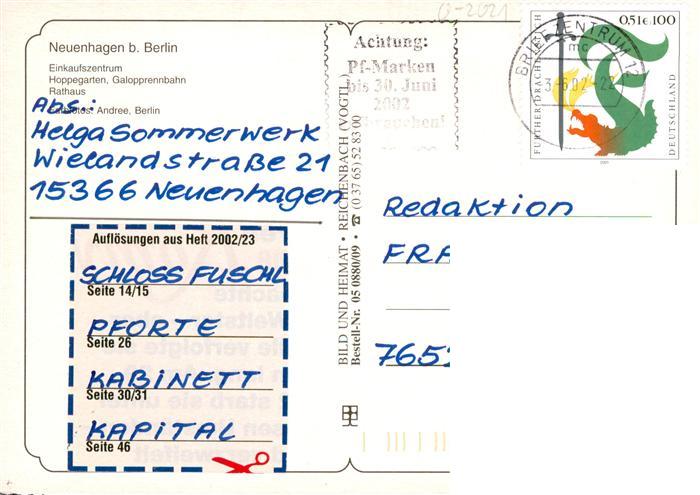 Q-2021
Neuenhagen b. Berlin
Einkaufszentrum
Hoppegarten, Galopprennbahn
Rathaus
Farbfotos: Andree, Berlin
Abs.:
Helga Sommerwerk
Wielandstraße 21
15366 Neuenhagen
Auflösungen aus Heft 2002/23
SCHLOSS FUSCHL
Seite 14/15
PFORTE
Seite 26
KABINETT
Seite 30/31
KAPITAL
Seite 46
BILD UND HEIMAT • REICHENBACH (VOGTL)
Bestell-Nr. 05 0880/09 • ☎ (0 37 65) 52 83 00
Achtung:
Pf-Marken
bis 30. Juni
2002
BRIEFZENTRUM 12
mc
0,51€ 100
FURTHER DRACHENSTICH
DEUTSCHLAND
2001
Redaktion
FRA
765